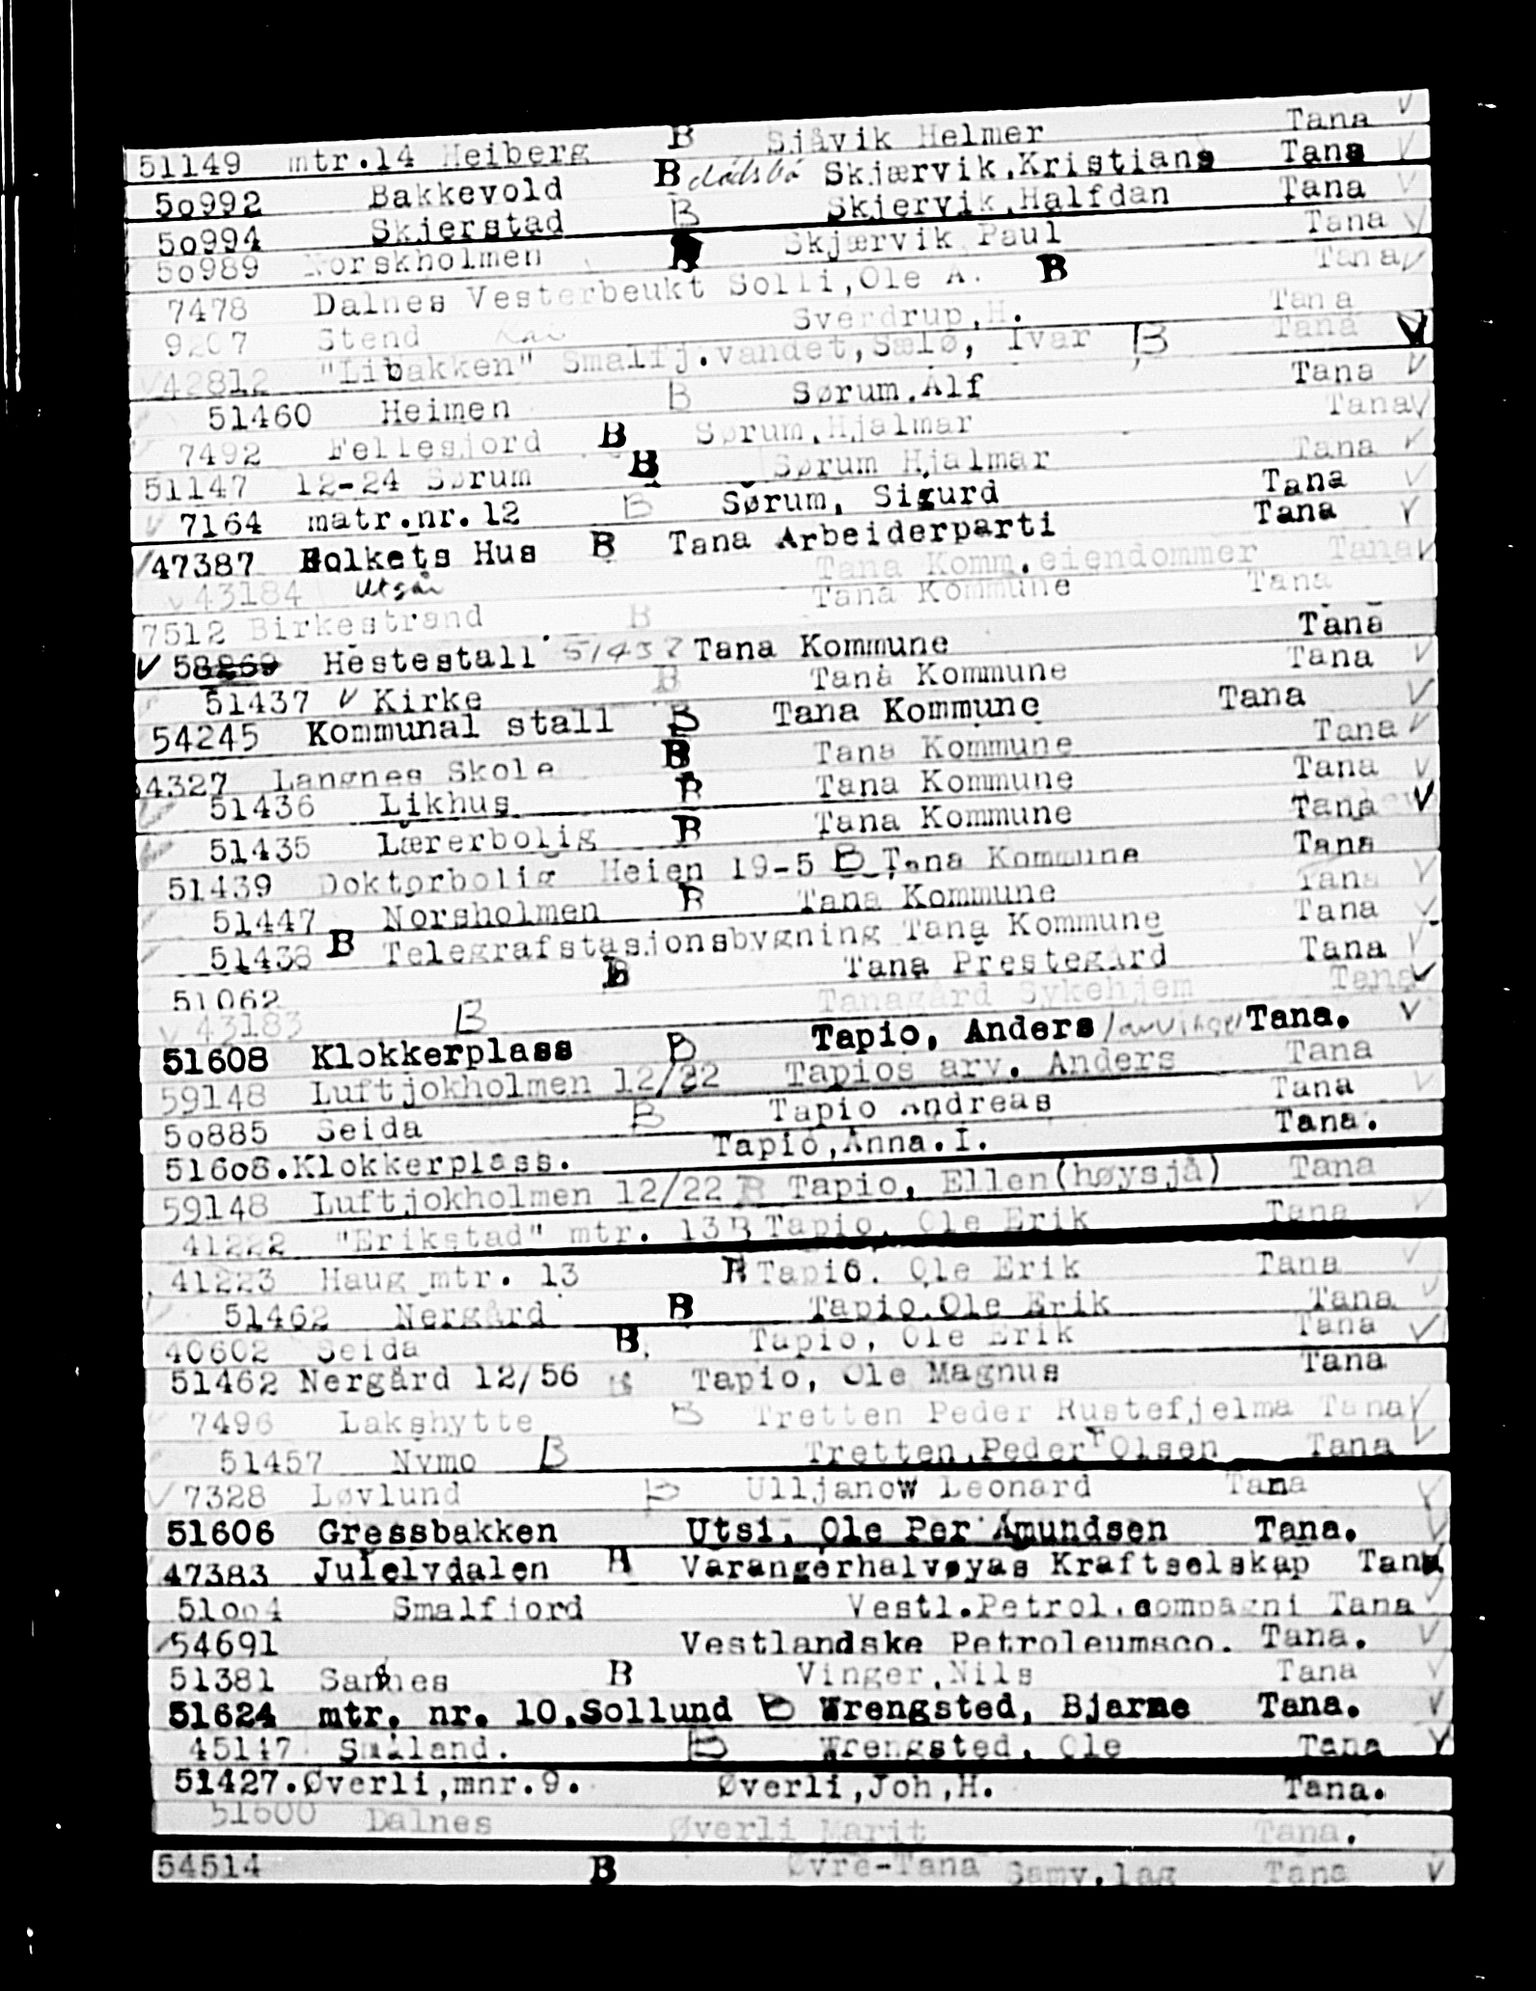 51149 mtr.14 Heiberg B Sjåvik Helmer Tana ✓
50992 Bakkevold B dødsbo Skjærvik,Kristiane Tana ✓
50994 Skjerstad B Skjervik,Halfdan Tana ✓
50989 Norskholmen Skjærvik Paul Tana ✓
7478 Dalnes Vesterbeukt Solli,Ole A. B Tana ✓
9207 Stend Sverdrup,H. Tana
✓ 42812 "Libakken" Smalfj.vandet,Sælø, Ivar B Tana ✓
51460 Heimen B Sørum,Alf Tana ✓
7492 Fellesjord B Sørum,Hjalmar Tana ✓
51147 12-24 Sørum B Sørum Hjalmar Tana ✓
✓ 7164 matr.nr.12 B Sørum, Sigurd Tana ✓
47387 Folkets Hus B Tana Arbeiderparti Tana ✓
✓ 43184 utgår Tana Komm.eiendommer Tana ✓
7512 Birkestrand B Tana Kommune Tana
✓ 58269 Hestestall 51437 Tana Kommune Tana
51437 ✓ Kirke B Tana Kommune Tana ✓
54245 Kommunal stall B Tana Kommune Tana ✓
4327 Langnes Skole B Tana Kommune Tana ✓
51436 Likhus B Tana Kommune Tana ✓
51435 Lærerbolig B Tana Kommune Tana ✓
51439 Doktorbolig Heien 19-5 B Tana Kommune Tana
51447 Norsholmen B Tana Kommune Tana ✓
51438 B Telegrafstasjonsbygning Tana Kommune Tana ✓
51062 B Tana Prestegård Tana ✓
✓ 43183 B Tanagård Sykehjem Tana ✓
51608 Klokkerplass B Tapio, Anders Tana. ✓
59148 Luftjokholmen 12/22 Tapios arv. Anders Tana
50885 Seida B Tapio Andreas Tana ✓
51608.Klokkerplass. Tapio,Anna.I. Tana.
59148 Luftjokholmen 12/22 B Tapio, Ellen(høysjå) Tana
41222 "Erikstad" mtr. 13 B Tapio, Ole Erik Tana ✓
41223 Haug mtr. 13 B Tapio. Ole Erik Tana ✓
51462 Nergård B Tapio,Ole Erik Tana ✓
40602 Seida B Tapio, Ole Erik Tana ✓
51462 Nergård 12/56 B Tapio, Ole Magnus Tana
7496 Lakshytte B Tretten Peder Rustefjelma Tana ✓
51457 Nymo B Tretten,Peder Olsen Tana ✓
✓ 7328 Løvlund B Ulljanow Leonard Tana ✓
51606 Gressbakken Utsi, Ole Per Amundsen Tana. ✓
47383 Julelvdalen B Varangerhalvøyas Kraftselskap Tana
51004 Smalfjord Vestl.Petrol.compagni Tana ✓
54691 Vestlandske Petroleumsco. Tana. ✓
51381 Sandnes B Vinger,Nils Tana ✓
51624 mtr. nr. 10,Sollund B Wrengsted, Bjarne Tana. ✓
45147 Småland. B Wrengsted, Ole Tana ✓
51427.Øverli,mnr.9. Øverli,Joh,H. Tana.
51600 Dalnes Øverli Marit Tana.
54514 B Øvre-Tana Samv.lag Tana ✓